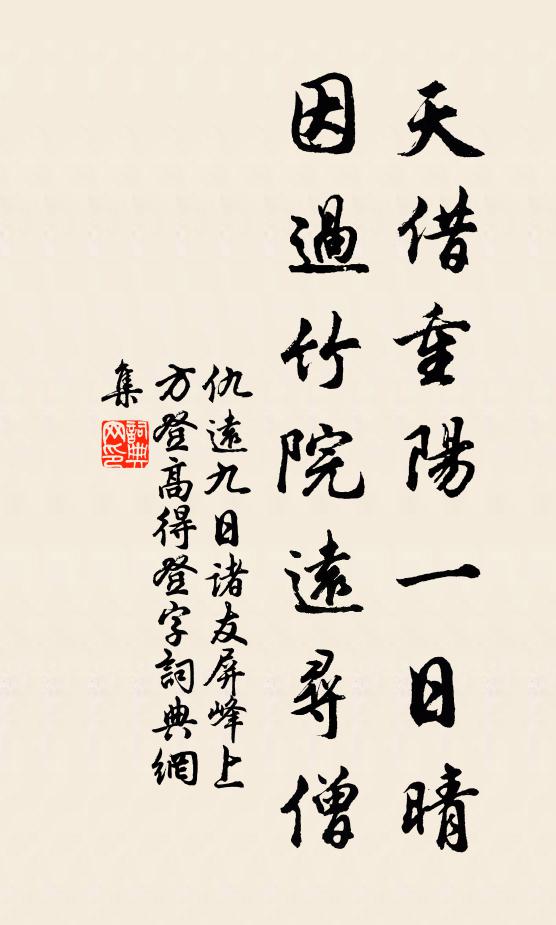 天借重陽一日晴
因過竹院遠尋僧
仇遠九日諸友屏峰上
方登高得登字詞典網
集
詞典
网印